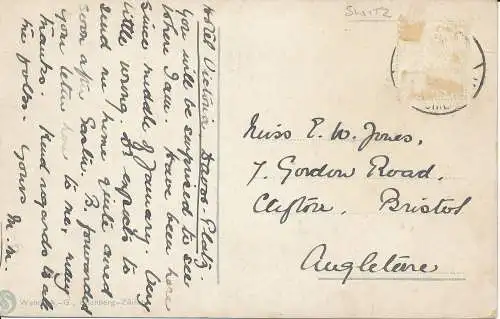 SWITZ
Hotel Victoria, Davos-Platz.
you will be surprised to see
where I am. Have been here
since middle of January. Very
little wrong. Dr expects to
send me home quite
soon after Easter. B. forwarded
your letter here to me,
thanks. Kind regards to all
the folks. yours M.M.
Miss E. W. Jones,
7. Gordon Road,
Clifton, Bristol
Angleterre